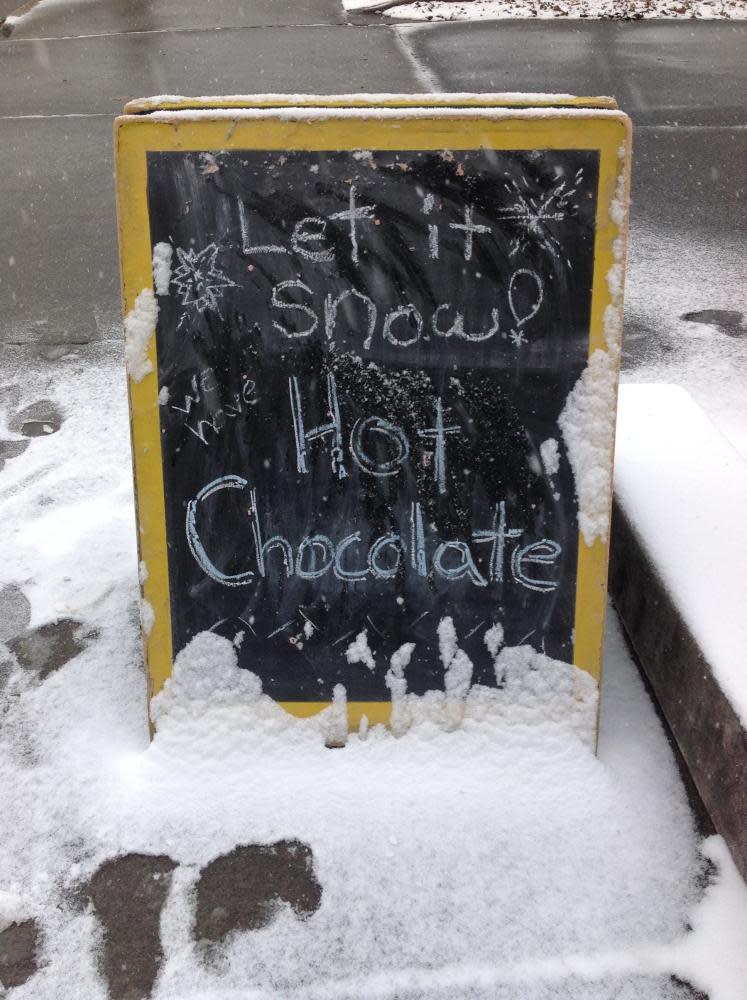 Let it
snow!
we
have
Hot
Chocolate